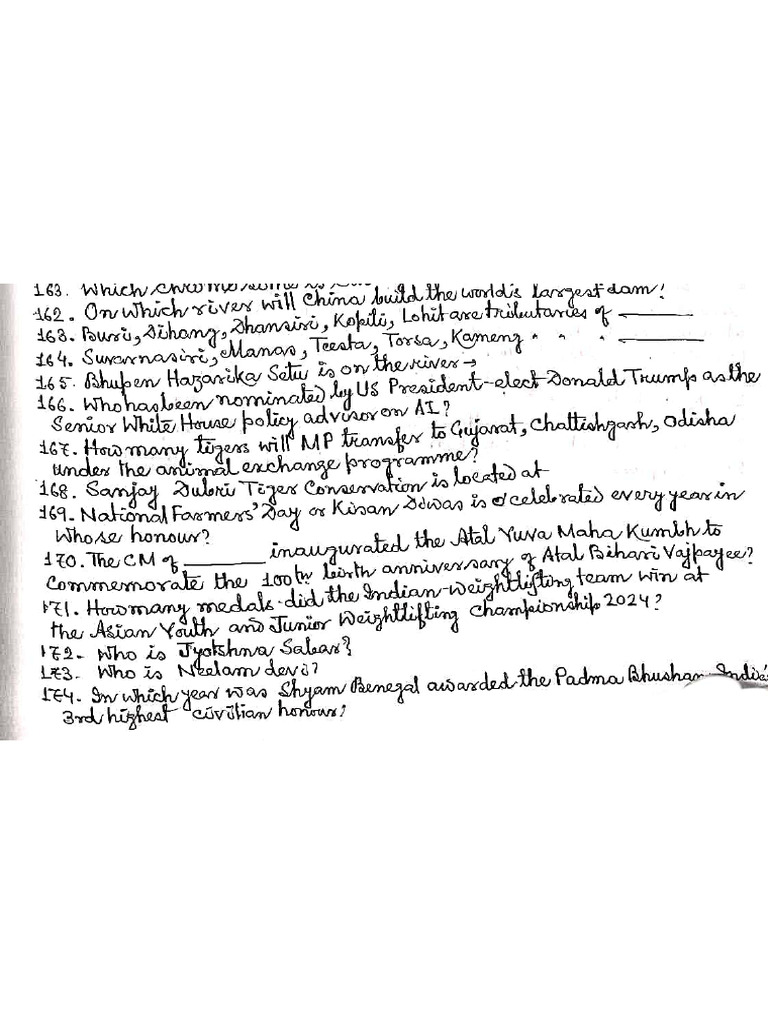 163. Which
162. On which river will China build the world's largest dam?
163. Buri, Dihang, Dhansiri, Kopili, Lohit are tributaries of ———
164. Suvarnasiri, Manas, Teesta, Torsa, Kameng " " " ———
165. Bhupen Hazarika Setu is on the river →
166. Who has been nominated by US President-elect Donald Trump as the
Senior White House policy advisor on AI?
167. How many tigers will MP transfer to Gujarat, Chattishgarh, Odisha
under the animal exchange programme?
168. Sanjay Dubri Tiger Conservation is located at
169. National Farmers' Day or Kisan Diwas is celebrated every year in
whose honour?
170. The CM of ——— inaugurated the Atal Yuva Maha Kumbh to
Commemorate the 100th birth anniversary of Atal Bihari Vajpayee?
171. How many medals did the Indian Weightlifting team win at
the Asian Youth and Junior Weightlifting Championship 2024?
172. Who is Jyotshna Sabar?
173. Who is Neelam devi?
174. In which year was Shyam Benegal awarded the Padma Bhushan India's
3rd highest civilian honour?